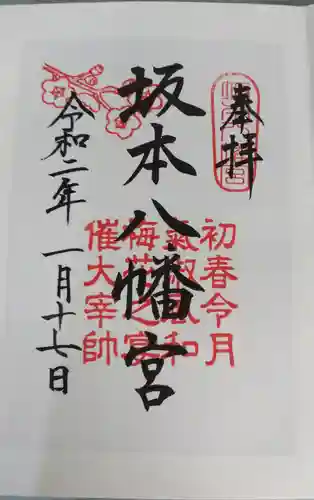 奉拝
坂本八幡宮
初春令月
氣淑風和
梅花之宴
催大宰帥
令和二年 一月十七日